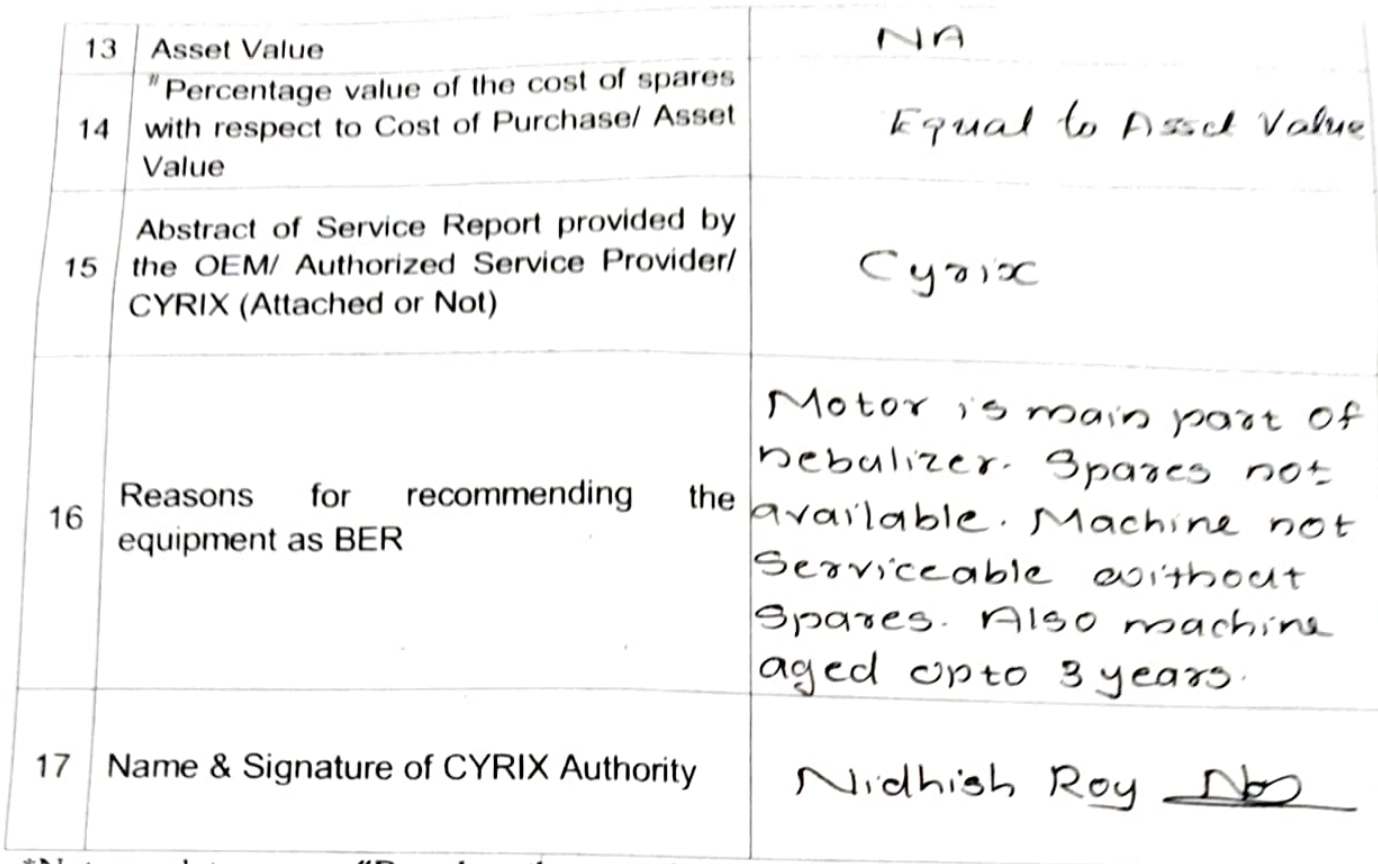 13 Asset Value NA
"Percentage value of the cost of spares
14 with respect to Cost of Purchase/ Asset Equal to Asset Value
Value
Abstract of Service Report provided by
15 the OEM/ Authorized Service Provider/ Cyrix
CYRIX (Attached or Not)
16 Reasons for recommending the
equipment as BER
Motor is main part of
nebulizer. Spares not
available. Machine not
Serviceable without
Spares. Also machine
aged upto 3 years.
17 Name & Signature of CYRIX Authority Nidhish Roy